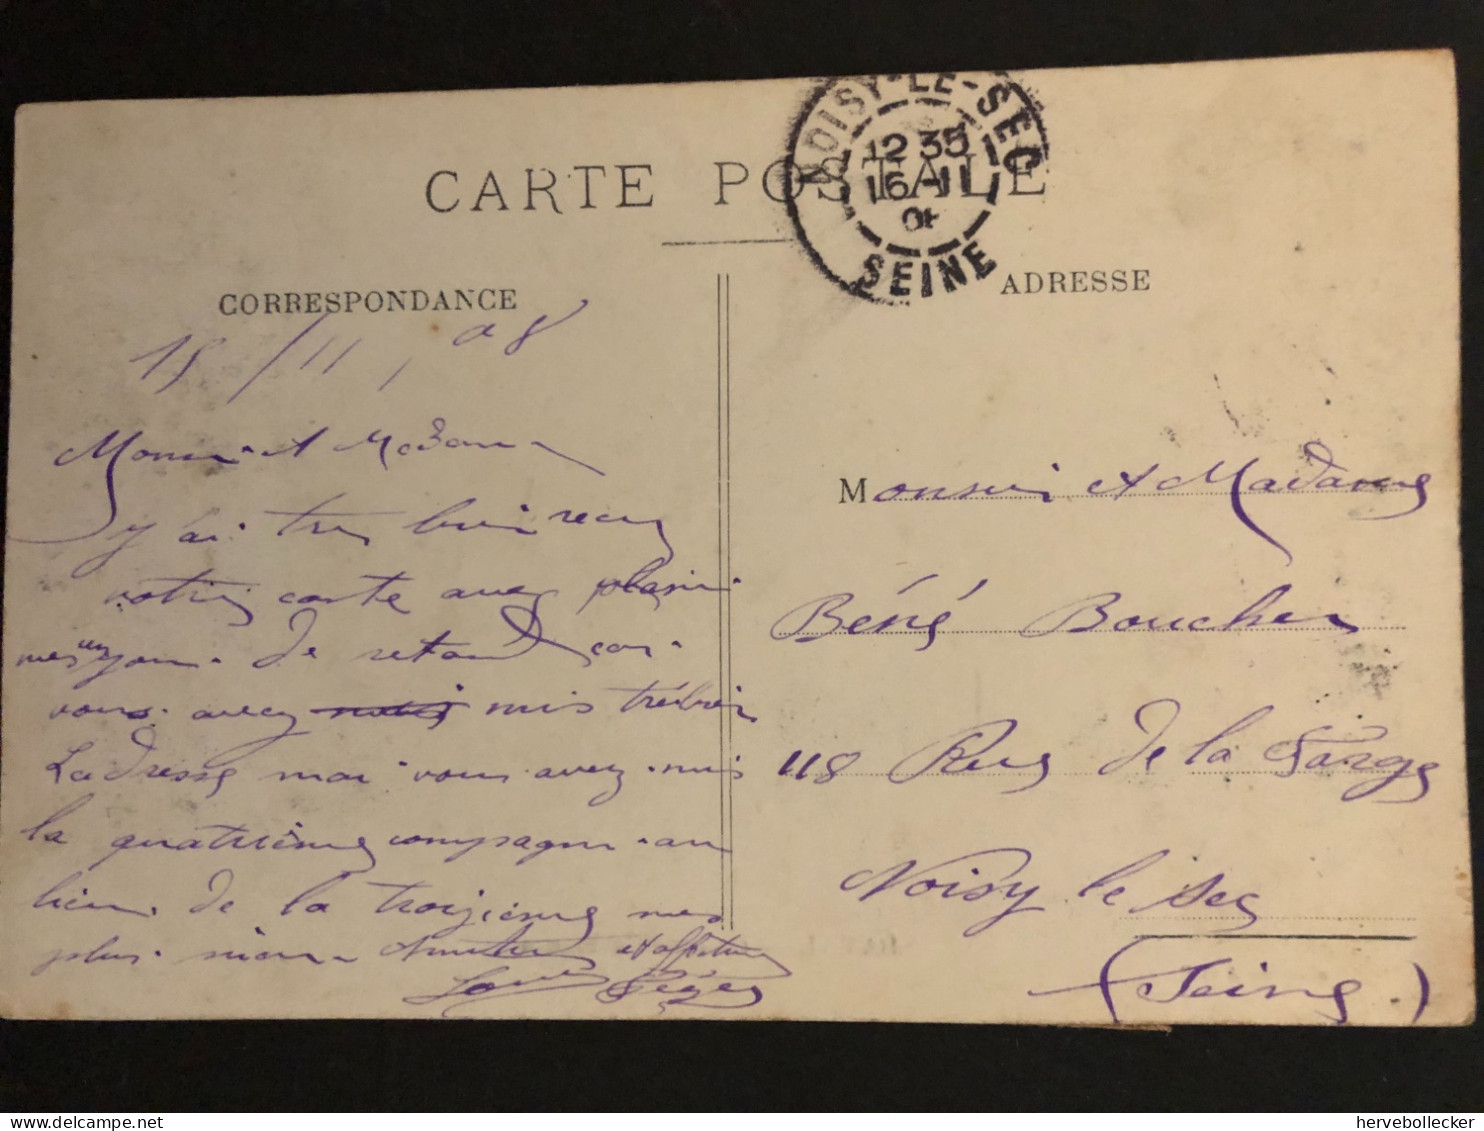 CARTE POSTALE
NOISY-LE-SEC
12 35
16-11
08
SEINE
CORRESPONDANCE
15/11, 08
Monsieur et Madame
J'ai très bien reçu
votre carte avec plaisir
de retard car
vous avez mis très bien
Ladresse mai vous avez mis
la quatrième compagnie au
lieu de la troizième
plus rien Amitiés et affectueux
Louis
ADRESSE
Monsieur et Madame
Béné Boucher
118 Rue de la Forge
Noisy le Sec
(Seine)
hervebollecker